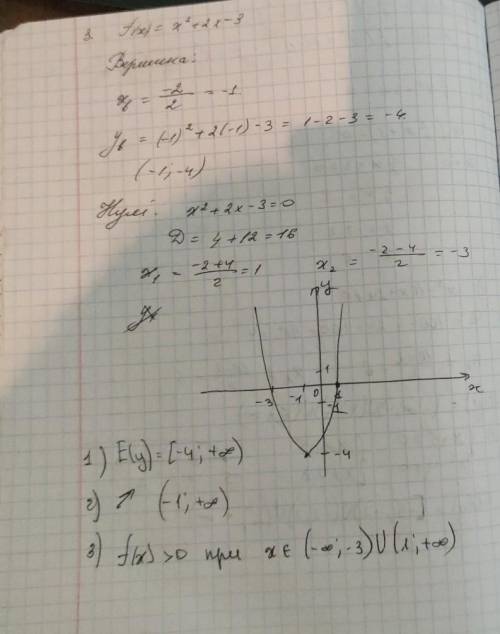 3. f(x) = x² + 2x - 3
Вершина:
xв = -2/2 = -1
yв = (-1)² + 2(-1) - 3 = 1 - 2 - 3 = -4
(-1; -4)
Нулі: x² + 2x - 3 = 0
D = 4 + 12 = 16
x₁ = (-2+4)/2 = 1 x₂ = (-2-4)/2 = -3
y
1
-3 -1 0 1 x
-1
-4
1) E(y) = [-4; +∞)
2) ↗ (-1; +∞)
3) f(x) > 0 при x ∈ (-∞; -3) ∪ (1; +∞)